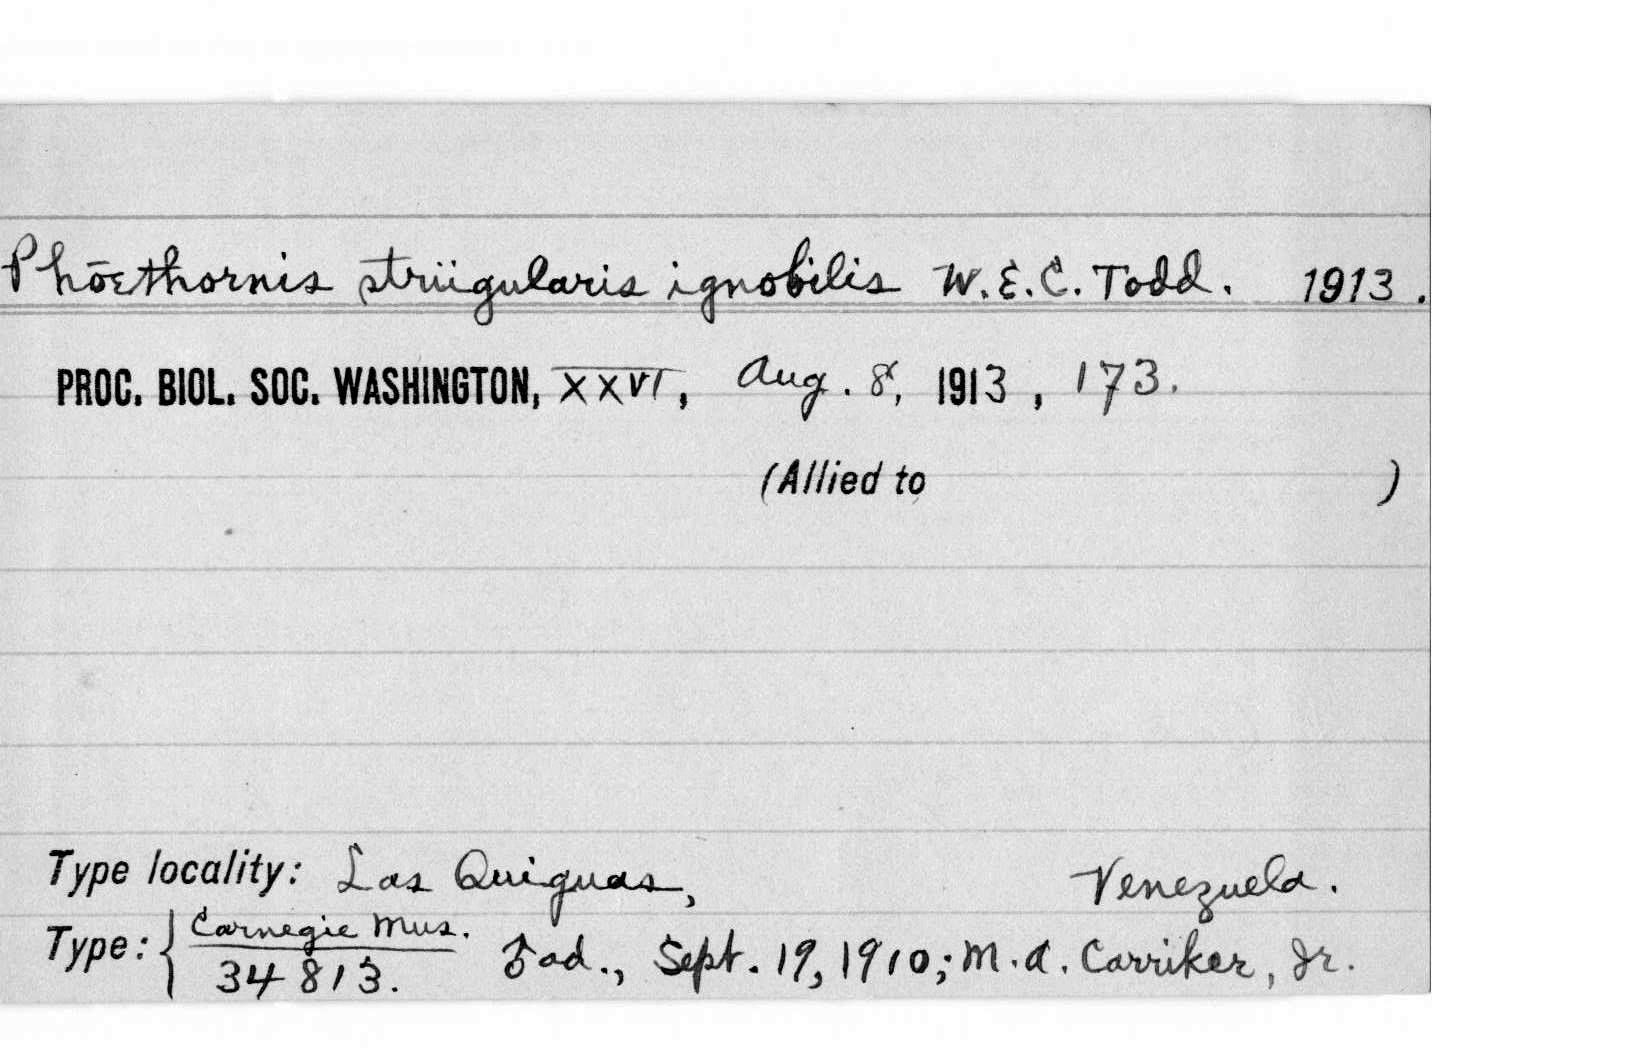 Phōethornis striigularis ignobilis W.E.C. Todd. 1913.
PROC. BIOL. SOC. WASHINGTON, XXVI, Aug. 8, 1913, 173.
(Allied to )
Type locality: Las Quiguas, Venezuela.
Type: { Carnegie Mus.
34813. ♂ ad., Sept. 19, 1910; M.A. Carriker, Jr.